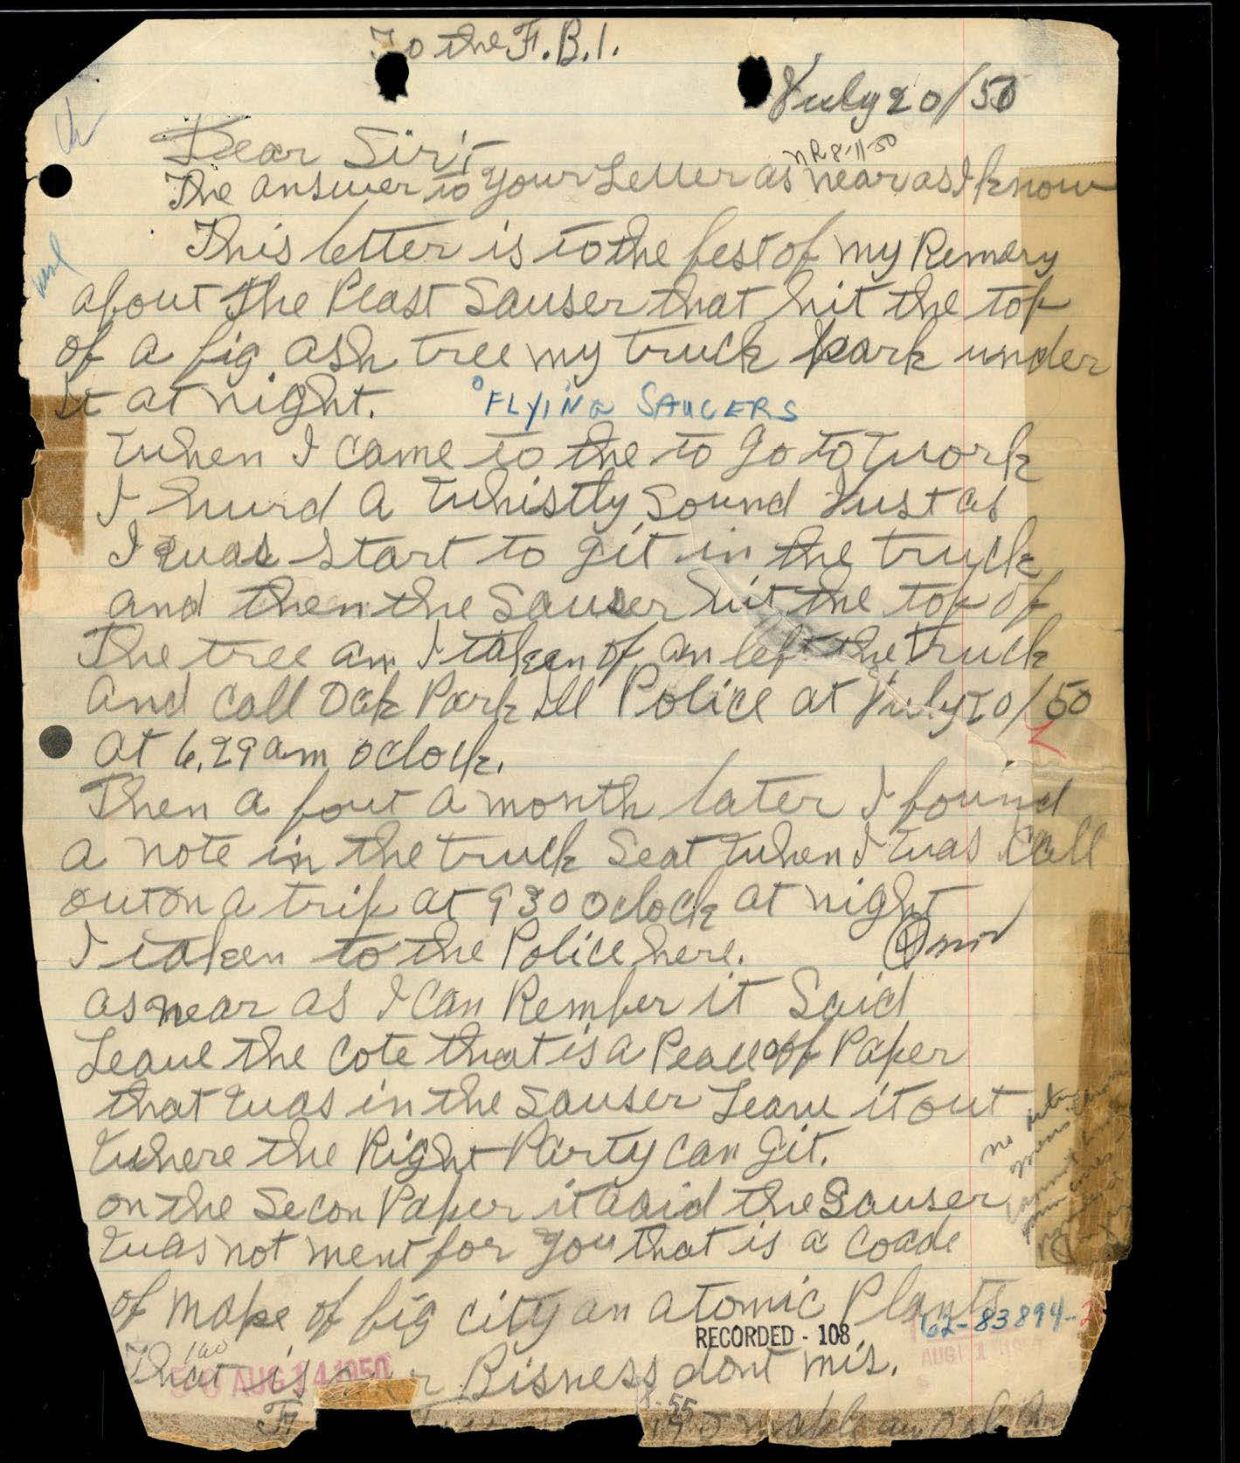 To the F.B.I.
July 20/50
Dear Sir's
NR 8-11-50
The answer to your Letter as near as I know
This letter is to the best of my Remery
about The Plast Sauser that hit the top
of a big ash tree my truck park under
it at night.
"FLYING SAUCERS
When I came to the to go to work
I hurd a whistly sound Just as
I was start to git in the truck
and then the Sauser hit the top of
The tree an I taken of an left the truck
and Call Oak Park Ill Police at July 20/50
at 6,29 am oclock.
Then a bout a month later I found
a note in the truck Seat when I was Call
out on a trip at 930 oclock at night
I taken to the Police here.
as near as I Can Rember it Said
Leave the Cote that is a Peace of Paper
that was in the Sauser Leave it out
Where the Right Party can git.
on the Secon Paper it said the Sauser
was not ment for you that is a Coade
of Make of big city an atomic Plants
RECORDED - 108
62-83894-2
AUG 14 1950
That is Bisness dont mis.